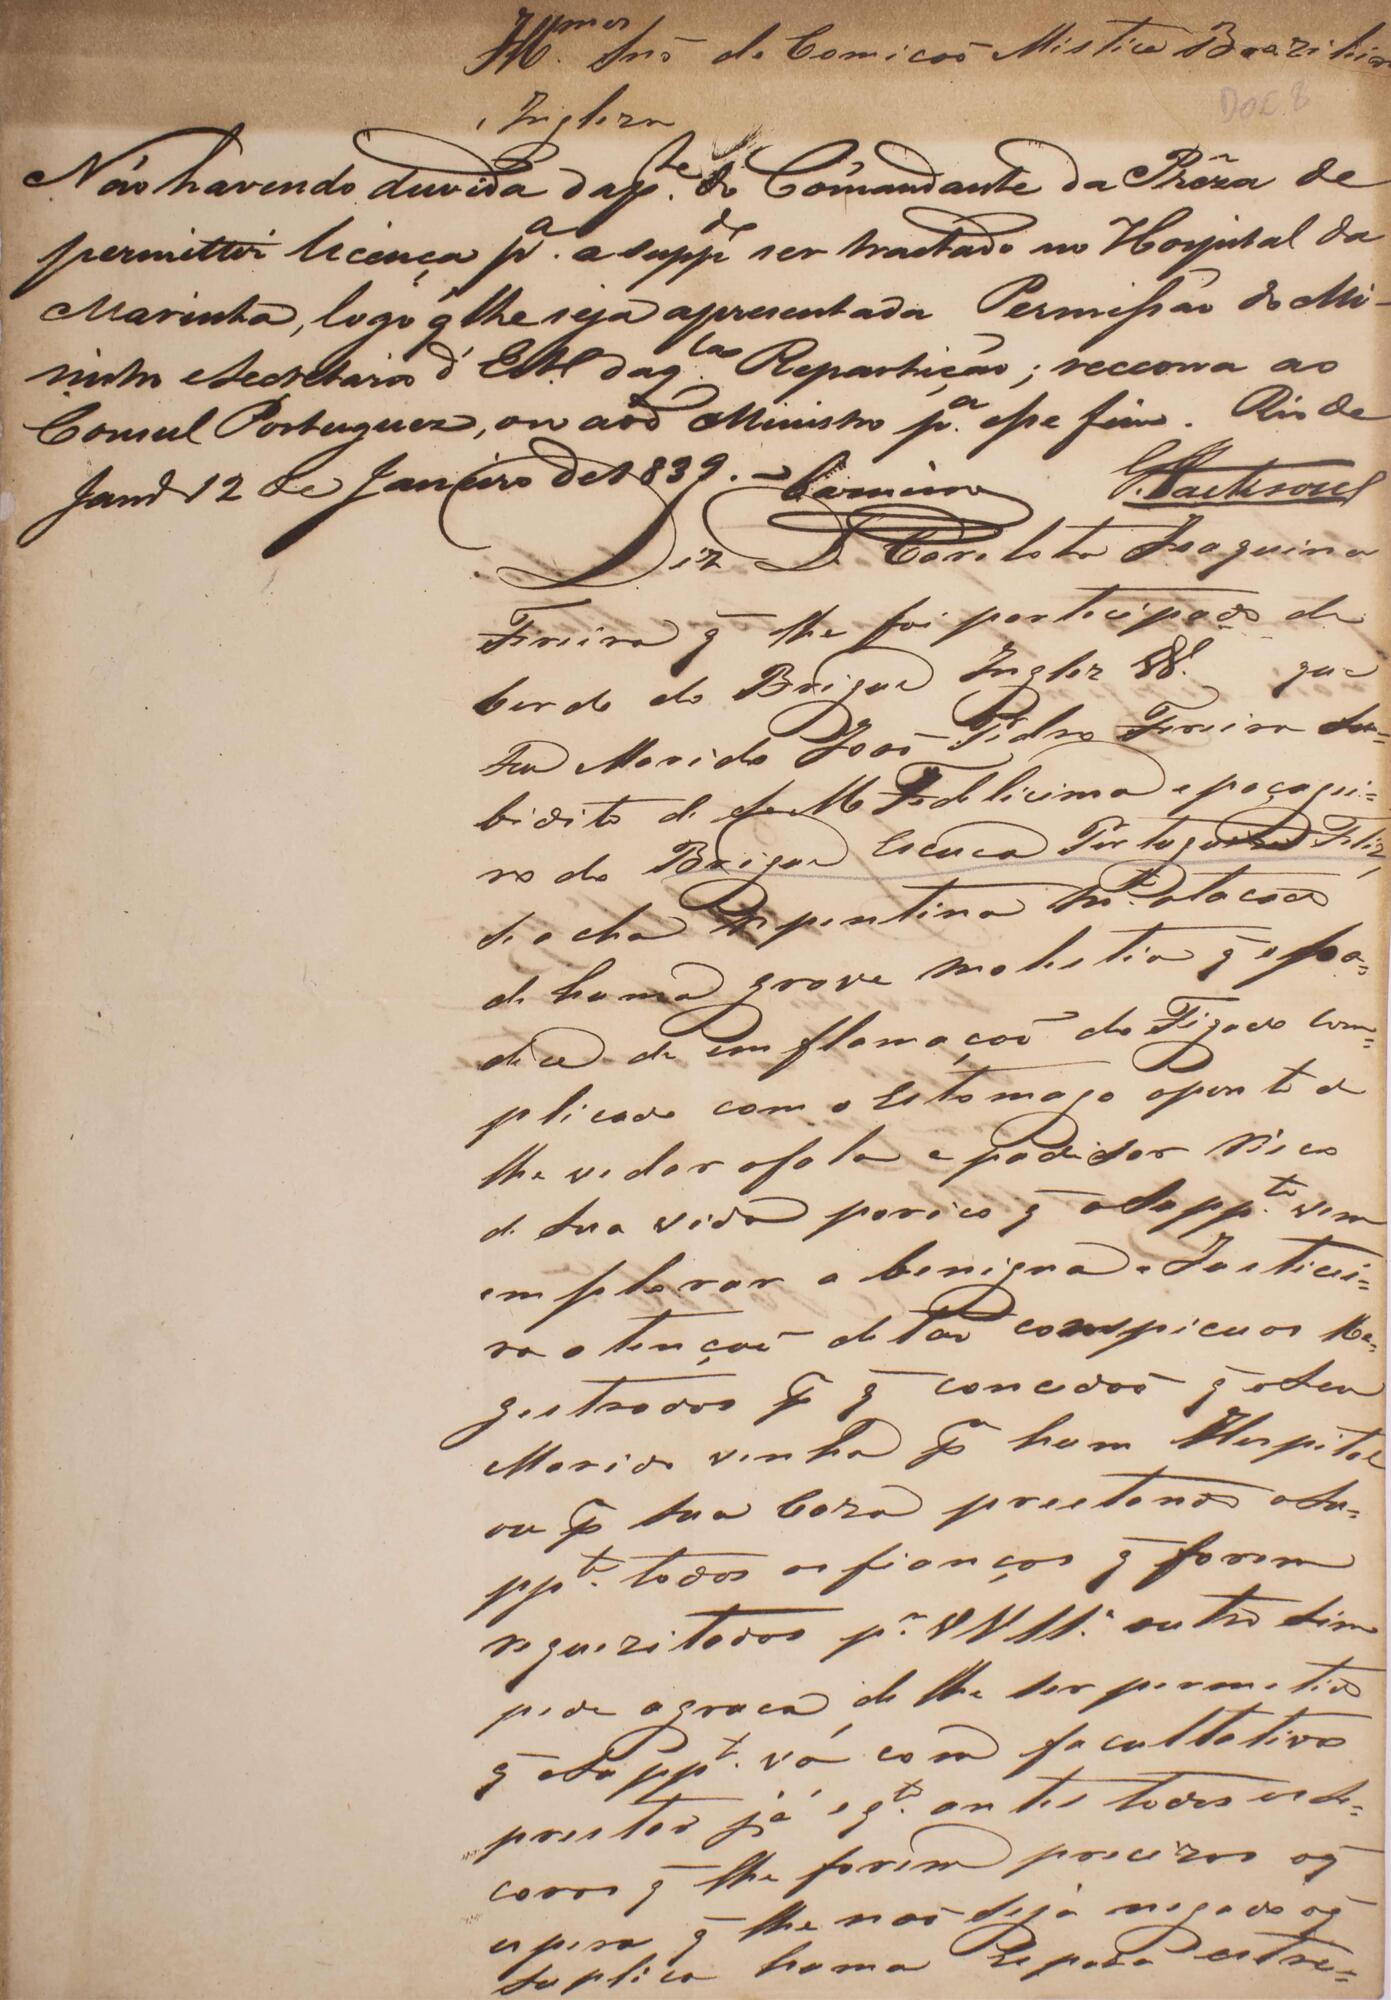 Illmos Snrs da Comicaõ Mistica Brazileira
e Ingleza
Doc. 8
Não havendo duvida da pte. do Cômandante da Prêza de
permittir licença pa. a suppde ser tractado no Hospital da
Marinha, logo q̃ lhe seja apresentada Permissão do Mi-
nistro e Secretario d'Estº daqlas Repartição; reccorra ao
Consul Portuguez, ou aod Ministro pa. esse fim. Rio de
Janrº 12 de Janeiro de 1839. Carneiro
Diz D. Carelota Joaquina
Fereira q̃ lhe foi participado de
bordo do Brigue Inglez que
seu Marido Joaõ Pedro Fereira Su=
bidito de S. M. Fedilicima e paçagei=
ro do Brigue Escuca Portugueza Feliz,
se acha Repentina mte. atacado
de huma grave molestia q̃ o pa=
dice de emflamaçaõ do Figado com=
plicado com o Estomago aponto de
lhe vedar afala e padidser Rico
de sua vida porico q̃ a Suppte. vem
emplorar a benigna e Justicei=
ra atençaõ de taõ conspicuos Ma=
gestrados p̃ q̃ concedaõ q̃ o seu
Marido venha p̃a hum Hospital
ou p̃ sua Caza prestando a Su=
ppte. todas as fianças q̃ forem
requezitadas pr. VV SSas. outro sim
pede a graca de lhe ser permetido
q̃ a Suppte. vá com facultativo
prestar já e qto. antes todos os so=
coros q̃ lhe forem precizos o q̃
espera q̃ lhe naõ seja negado o q̃
suplica huma Espoza estre=